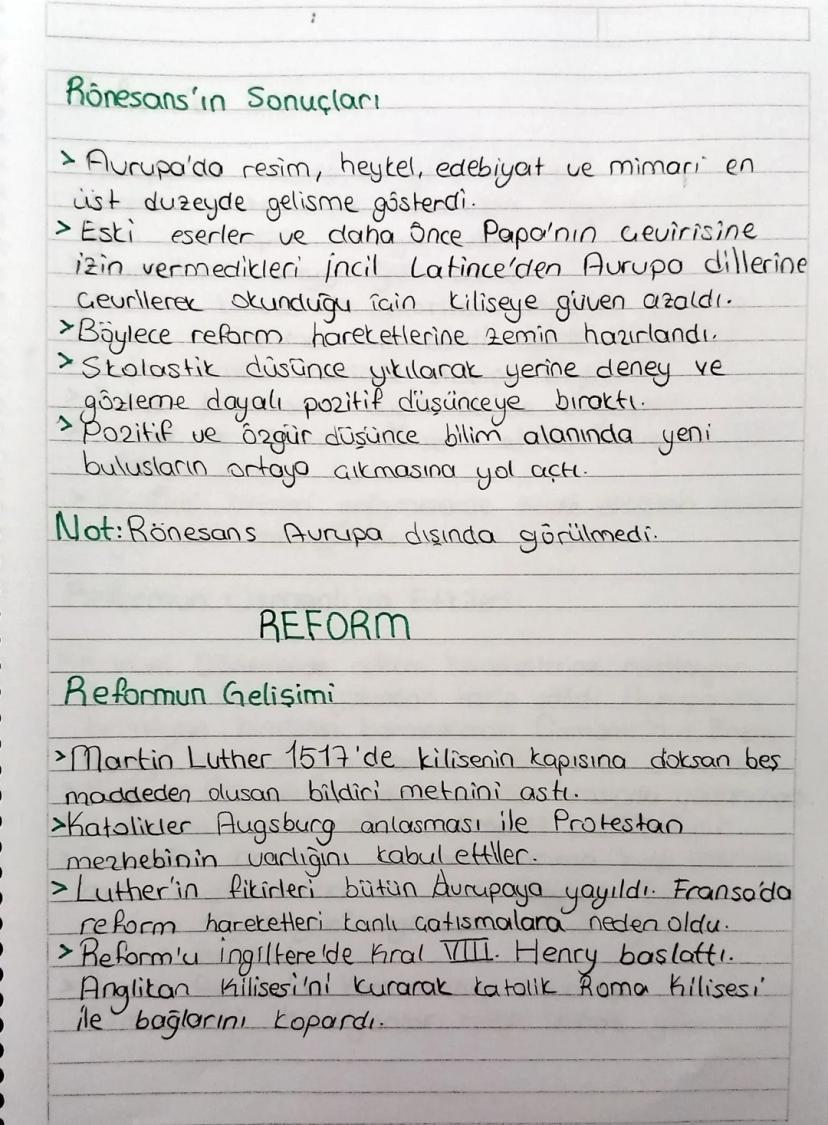 Rönesans'ın Sonuçları
> Avrupa'da resim, heykel, edebiyat ve mimari en
üst duzeyde gelisme gösterdi.
> Eski eserler ve daha önce Papa'nın çevirisine
izin vermedikleri İncil Latince'den Avrupa dillerine
çevrilerek okunduğu için kiliseye güven azaldı.
> Böylece reform hareketlerine zemin hazırlandı.
> Skolastik düsünce yıkılarak yerine deney ve
gözleme dayalı pozitif düşünceye bıraktı.
> Pozitif ve özgür düşünce bilim alanında yeni
bulusların ortaya çıkmasına yol açtı.
Not: Rönesans Avrupa dışında görülmedi.
REFORM
Reformun Gelişimi
> Martin Luther 1517'de kilisenin kapısına doksan beş
maddeden olusan bildiri metnini astı.
> Katolikler Augsburg anlasması ile Protestan
mezhebinin varlığını kabul ettiler.
> Luther'in fikirleri bütün Avrupaya yayıldı. Fransa'da
reform hareketleri kanlı çatısmalara neden oldu.
> Reform'u İngiltere'de Kral VIII. Henry baslattı.
Anglikan Kilisesi'ni kurarak Katolik Roma Kilisesi
ile bağlarını kopardı.